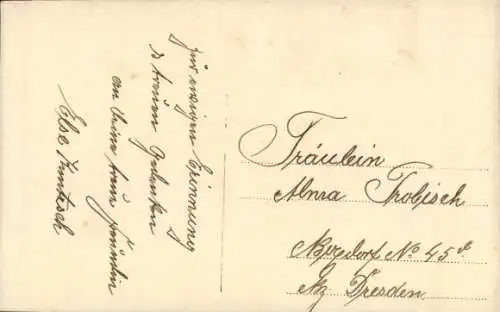 Zur ewigen Erinnung
& treuen Gedenken
an deine treue Freundin
Else
Fräulein
Alma Frobisch
No 45 d.
Dresden